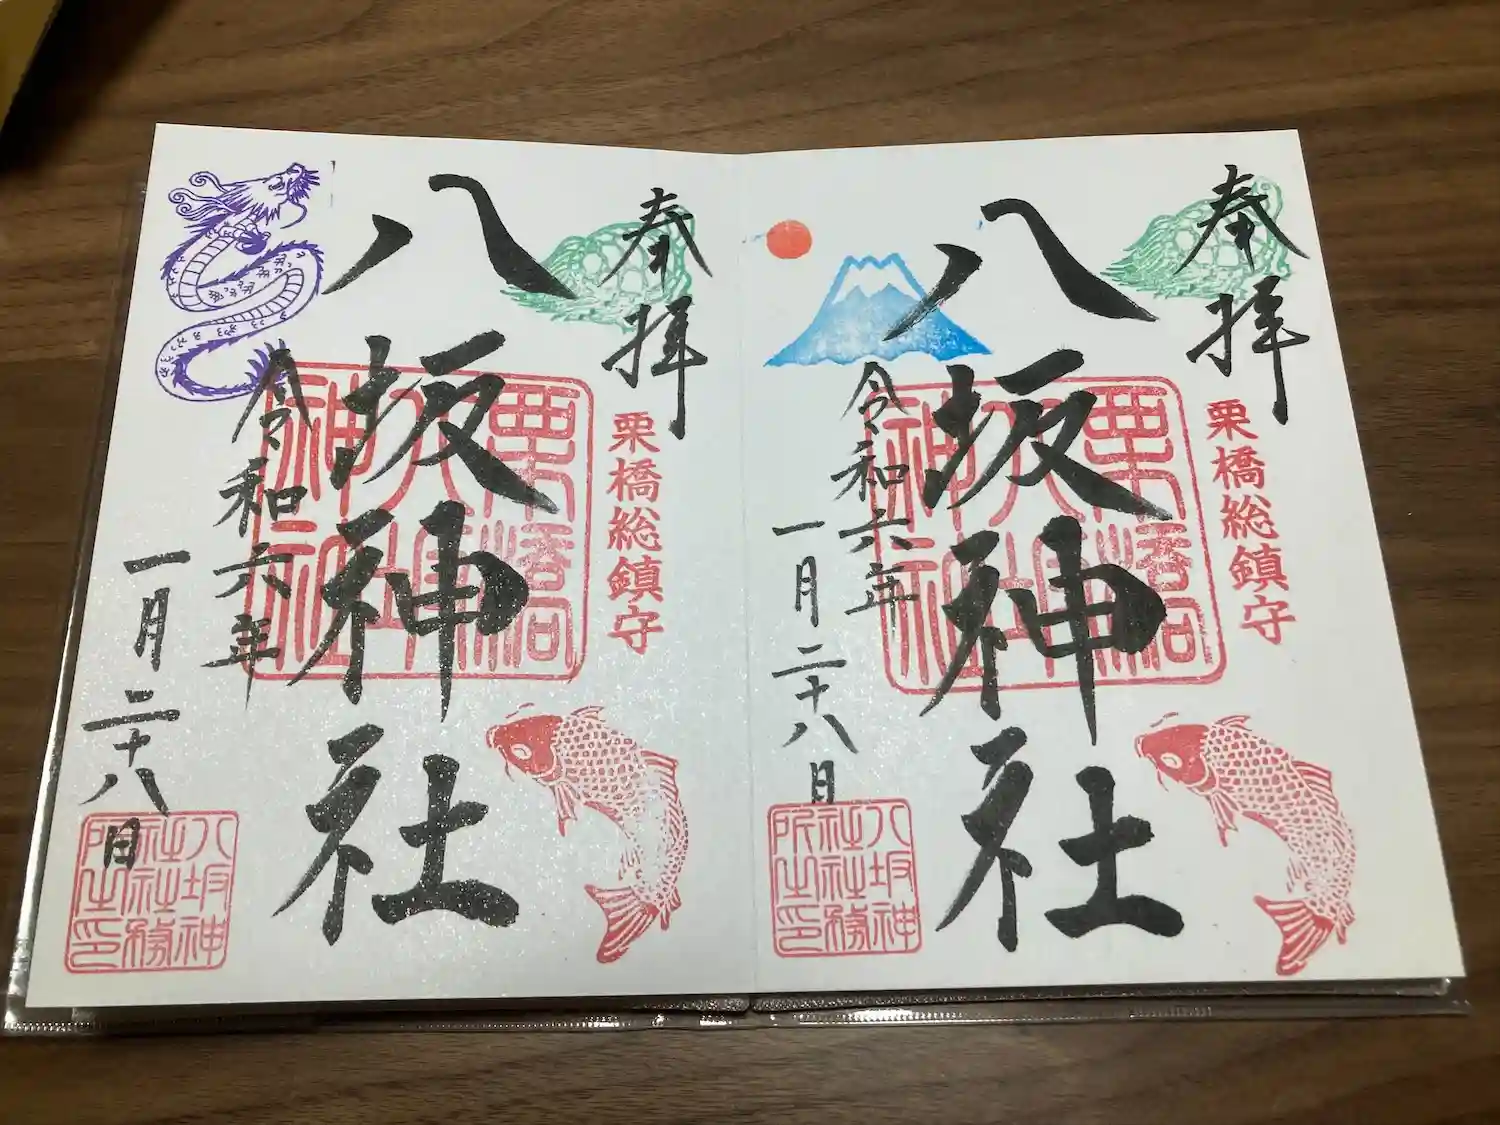 奉拝
栗橋総鎮守
八坂神社
栗橋八坂神社
令和六年
一月二十八日
八坂神社社務所之印
奉拝
栗橋総鎮守
八坂神社
栗橋八坂神社
令和六年
一月二十八日
八坂神社社務所之印